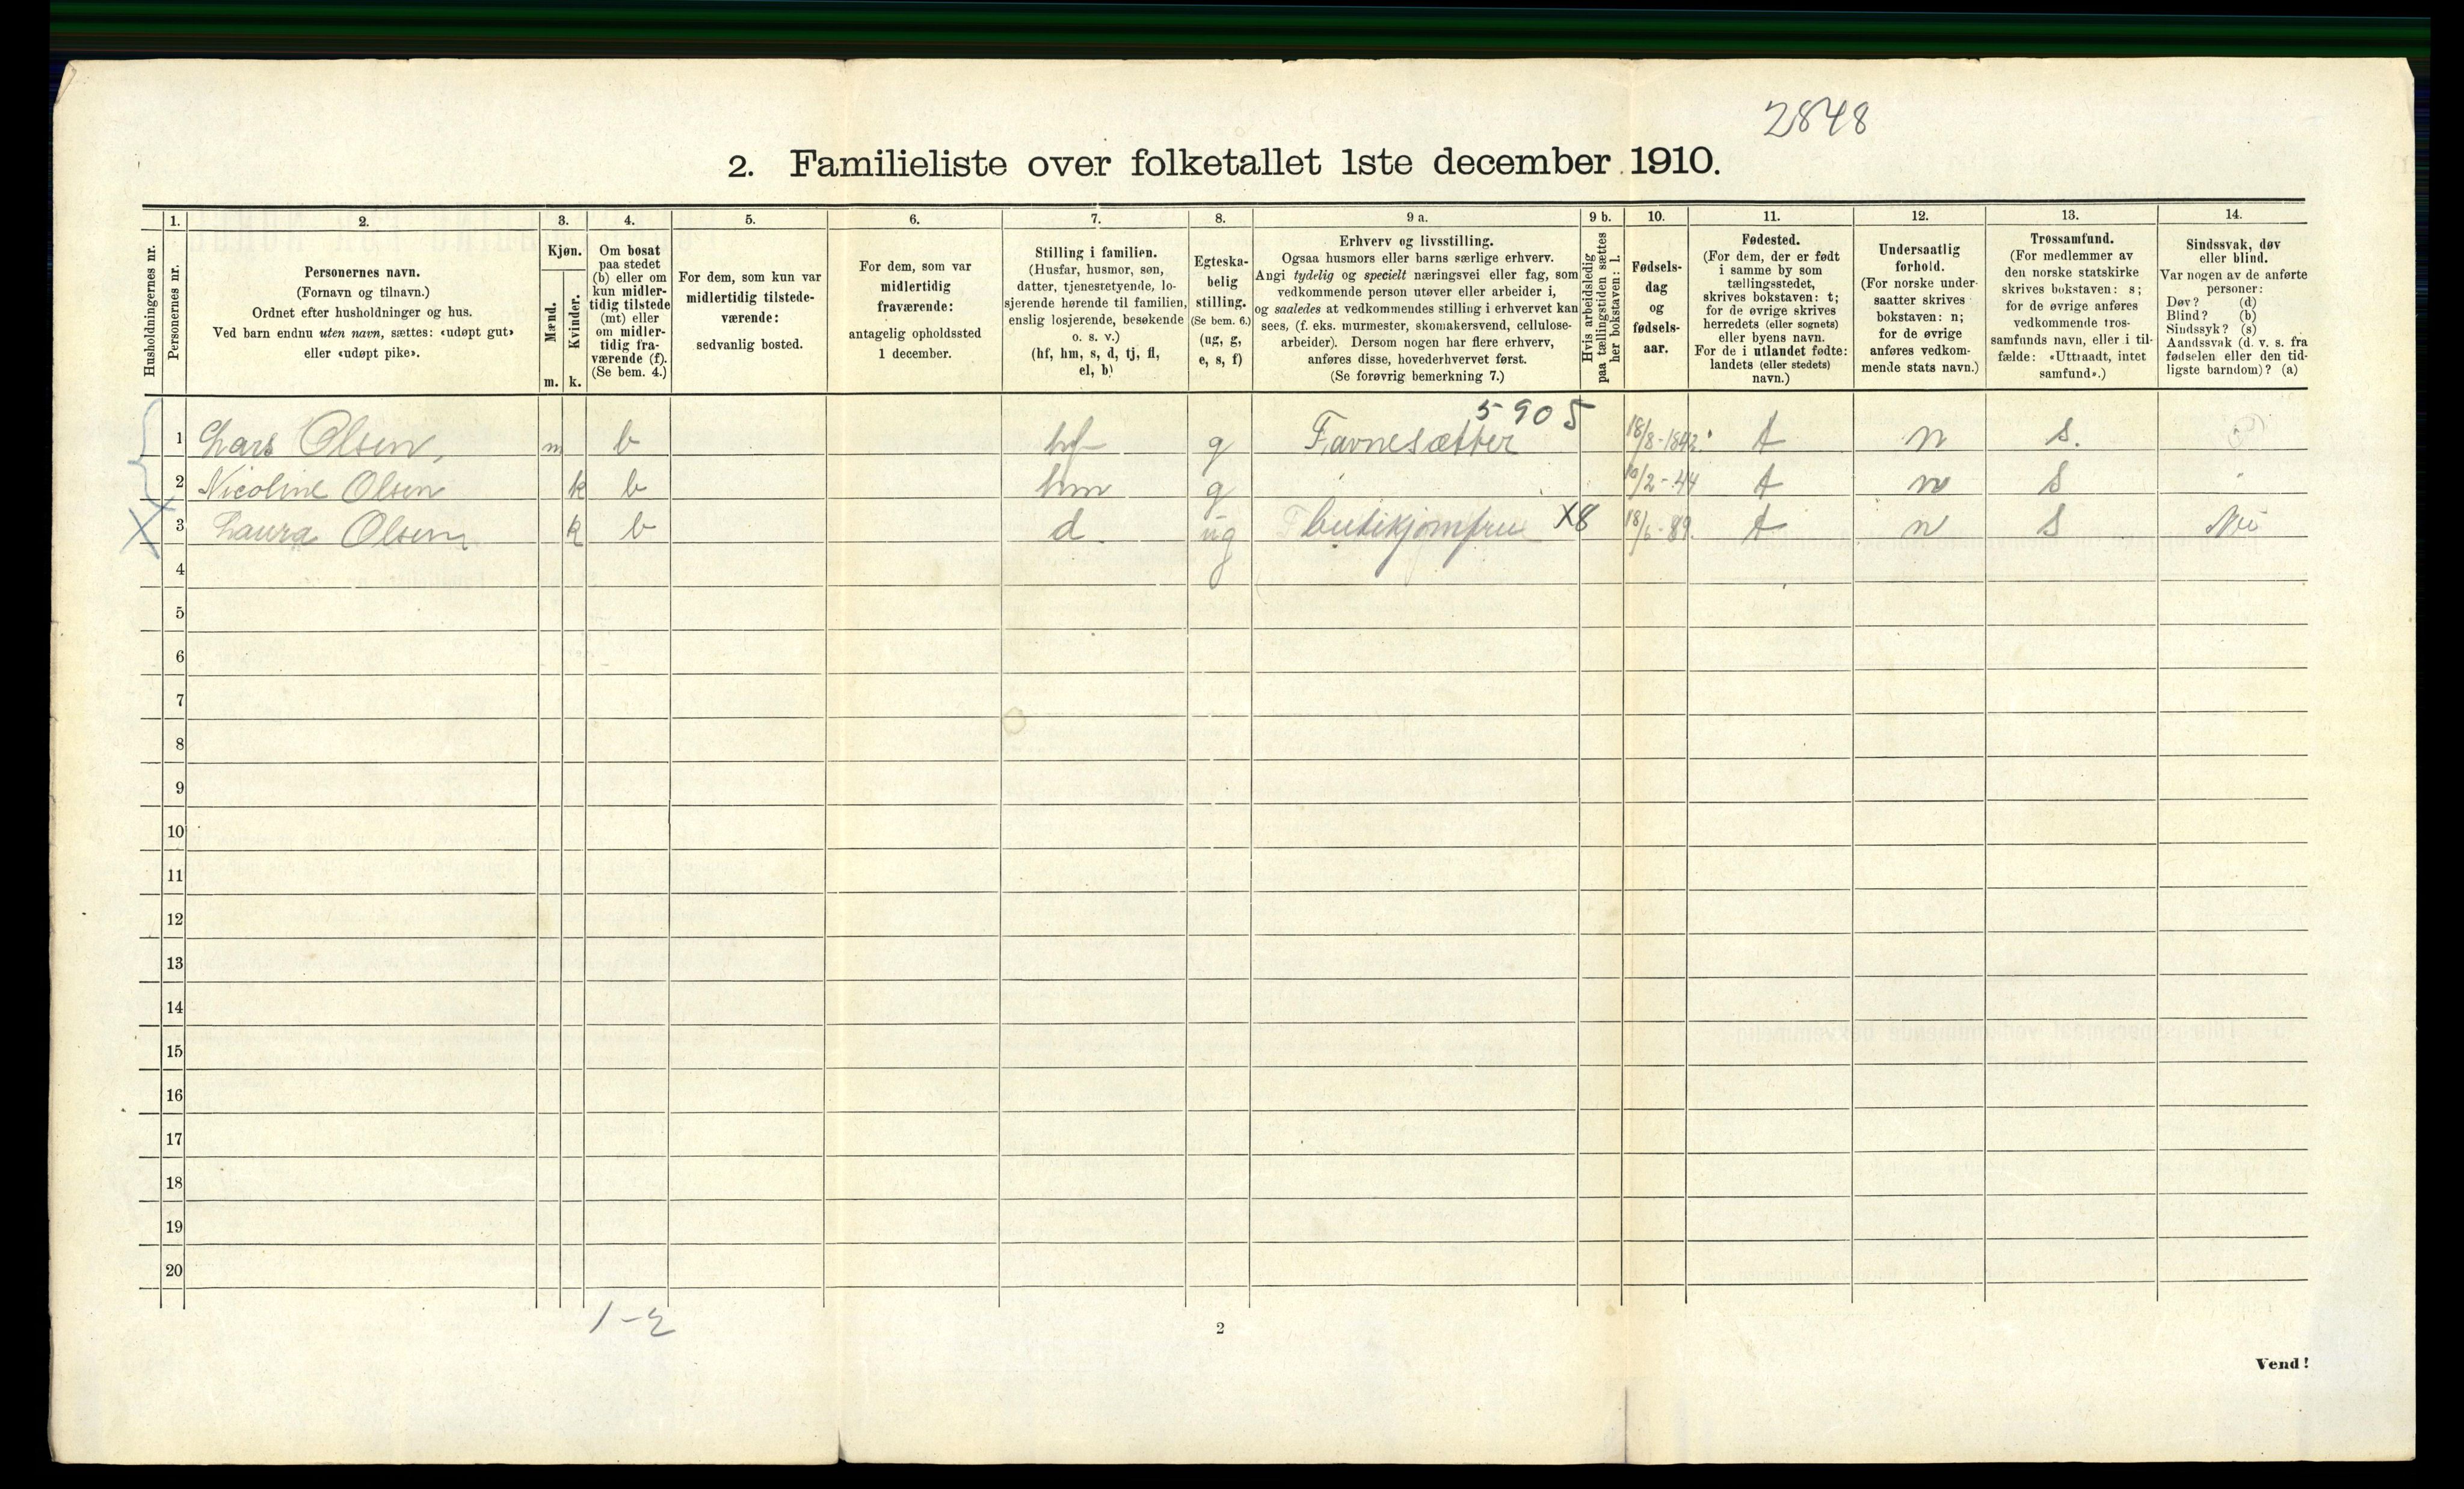 2848
2. Familieliste over folketallet 1ste december 1910.
Husholdningernes nr.
1.
Personernes nr.
2.
Personernes navn.
(Fornavn og tilnavn.)
Ordnet efter husholdninger og hus.
Ved barn endnu uten navn, sættes: «udøpt gut»
eller «udøpt pike».
3.
Kjøn.
Mænd.
Kvinder.
m. k.
4.
Om bosat
paa stedet
(b) eller om
kun midler-
tidig tilstede
(mt) eller
om midler-
tidig fra-
værende (f).
(Se bem. 4.)
5.
For dem, som kun var
midlertidig tilstede-
værende:
sedvanlig bosted.
6.
For dem, som var
midlertidig
fraværende:
antagelig opholdssted
1 december.
7.
Stilling i familien.
(Husfar, husmor, søn,
datter, tjenestetyende, lo-
sjerende hørende til familien,
enslig losjerende, besøkende
o. s. v.)
(hf, hm, s, d, tj, fl,
el, b)
8.
Egteska-
belig
stilling.
(Se bem. 6.)
(ug, g,
e, s, f)
9 a.
Erhverv og livsstilling.
Ogsaa husmors eller barns særlige erhverv.
Angi tydelig og specielt næringsvei eller fag, som
vedkommende person utøver eller arbeider i,
og saaledes at vedkommendes stilling i erhvervet kan
sees, (f. eks. murmester, skomakersvend, cellulose-
arbeider). Dersom nogen har flere erhverv,
anføres disse, hovederhvervet først.
(Se forøvrig bemerkning 7.)
9 b.
Hvis arbeidsledig
paa tællingstiden sættes
her bokstaven: l.
10.
Fødsels-
dag
og
fødsels-
aar.
11.
Fødested.
(For dem, der er født
i samme by som
tællingsstedet,
skrives bokstaven: t;
for de øvrige skrives
herredets (eller sognets)
eller byens navn.
For de i utlandet fødte:
landets (eller stedets)
navn.)
12.
Undersaatlig
forhold.
(For norske under-
saatter skrives
bokstaven: n;
for de øvrige
anføres vedkom-
mende stats navn.)
13.
Trossamfund.
(For medlemmer av
den norske statskirke
skrives bokstaven: s;
for de øvrige anføres
vedkommende tros-
samfunds navn, eller i til-
fælde: «Uttraadt, intet
samfund».)
14.
Sindssvak, døv
eller blind.
Var nogen av de anførte
personer:
Døv? (d)
Blind? (b)
Sindssyk? (s)
Aandssvak (d. v. s. fra
fødselen eller den tid-
ligste barndom)? (a)
5905
1 Lars Olsen, m b hf g Favnesætter 18/8-1842. t n s.
2 Nicoline Olsen k b hm g 10/2-44 t n s
3 Laura Olsen k b d ug butikjomfru X8 18/6-89. t n s Nei
4
5
6
7
8
9
10
11
12
13
14
15
16
17
18
19
20
1-2
2
Vend!